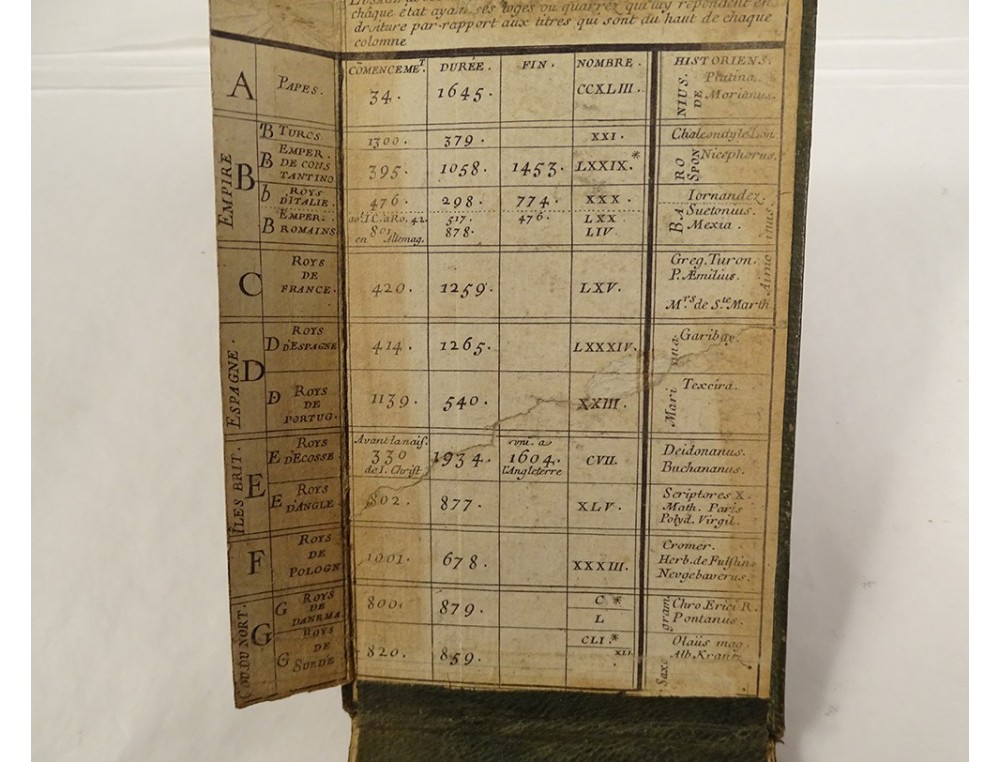 chaque état ayant ses loges ou quarrez qui luy repondent en
droiture par rapport aux titres qui sont du haut de chaque
colomne
COMENCEMET. DURÉE. FIN. NOMBRE. HISTORIENS.
A PAPES. 34. 1645. CCXLIII. Platina. Morianus.
NIUS. DE
EMPIRE
B
B TURCS. 1300. 379. XXI. Chalcondyle Lon.
B EMPER. DE CONSTANTINO 395. 1058. 1453. LXXIX.* Nicephorus.
RO SPON
b ROYS D'ITALIE. 476. 298. 774. XXX. Iornandez.
B EMPER. ROMAINS av. I.C. a Ro. 42. 517. 476. LXX Suetonius.
801 878. LIV. Mexia.
en Allemag.
BA
C ROYS DE FRANCE. 420. 1259. LXV. Greg. Turon.
P. Æmilius.
Mrs de Ste Marth.
Aimo inus
ESPAGNE.
D
D ROYS D'ESPAGNE 414. 1265. LXXXIV. Garibay.
D ROYS DE PORTUG. 1139. 540. XXIII. Texeira.
Mari ana
ÎLES BRIT.
E
E ROYS D'ECOSSE Avant la nais. 330 de I. Christ 1934. uni. a 1604. l'Angleterre CVII. Deidonanus.
Buchananus.
E ROYS D'ANGLE 802. 877. XLV. Scriptores X.
Math. Paris
Polyd. Virgil.
F ROYS DE POLOGN 1001. 678. XXXIII. Cromer.
Herb. de Fulstin
Neugebaverus.
COU. DU NORT.
G
G ROYS DE DANRMA 800. 879. C * Chro Erici R.
L Pontanus.
G ROYS DE SUEDE 820. 859. CLI.* Olaüs mag.
XLI. Alb. Krantz
Saxo gram